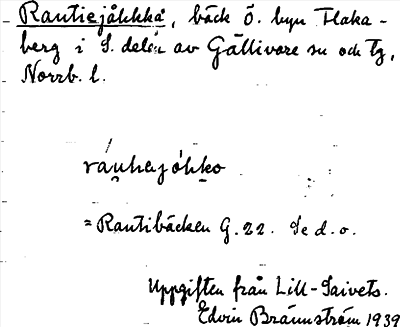 Rautiejåkkå, bäck Ö. byn Flaka-
berg i S. delen av Gällivare sn och tg,
Norrb. l.
= Rautibäcken G. 22. Se d. o.
Uppgiften från Lill-Saivets.
Edvin Brännström 1939